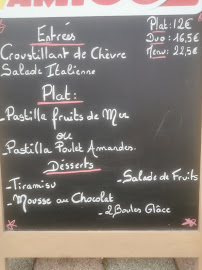 Entrées
Plat: 12€
Duo: 16,5€
Menu: 22,5€
Croustillant de Chèvre
Salade Italienne
Plat:
-Pastilla fruits de Mer
ou
-Pastilla Poulet Amandes.
Désserts
-Tiramisu
-Salade de Fruits
-Mousse au Chocolat
-2 Boules Glâce